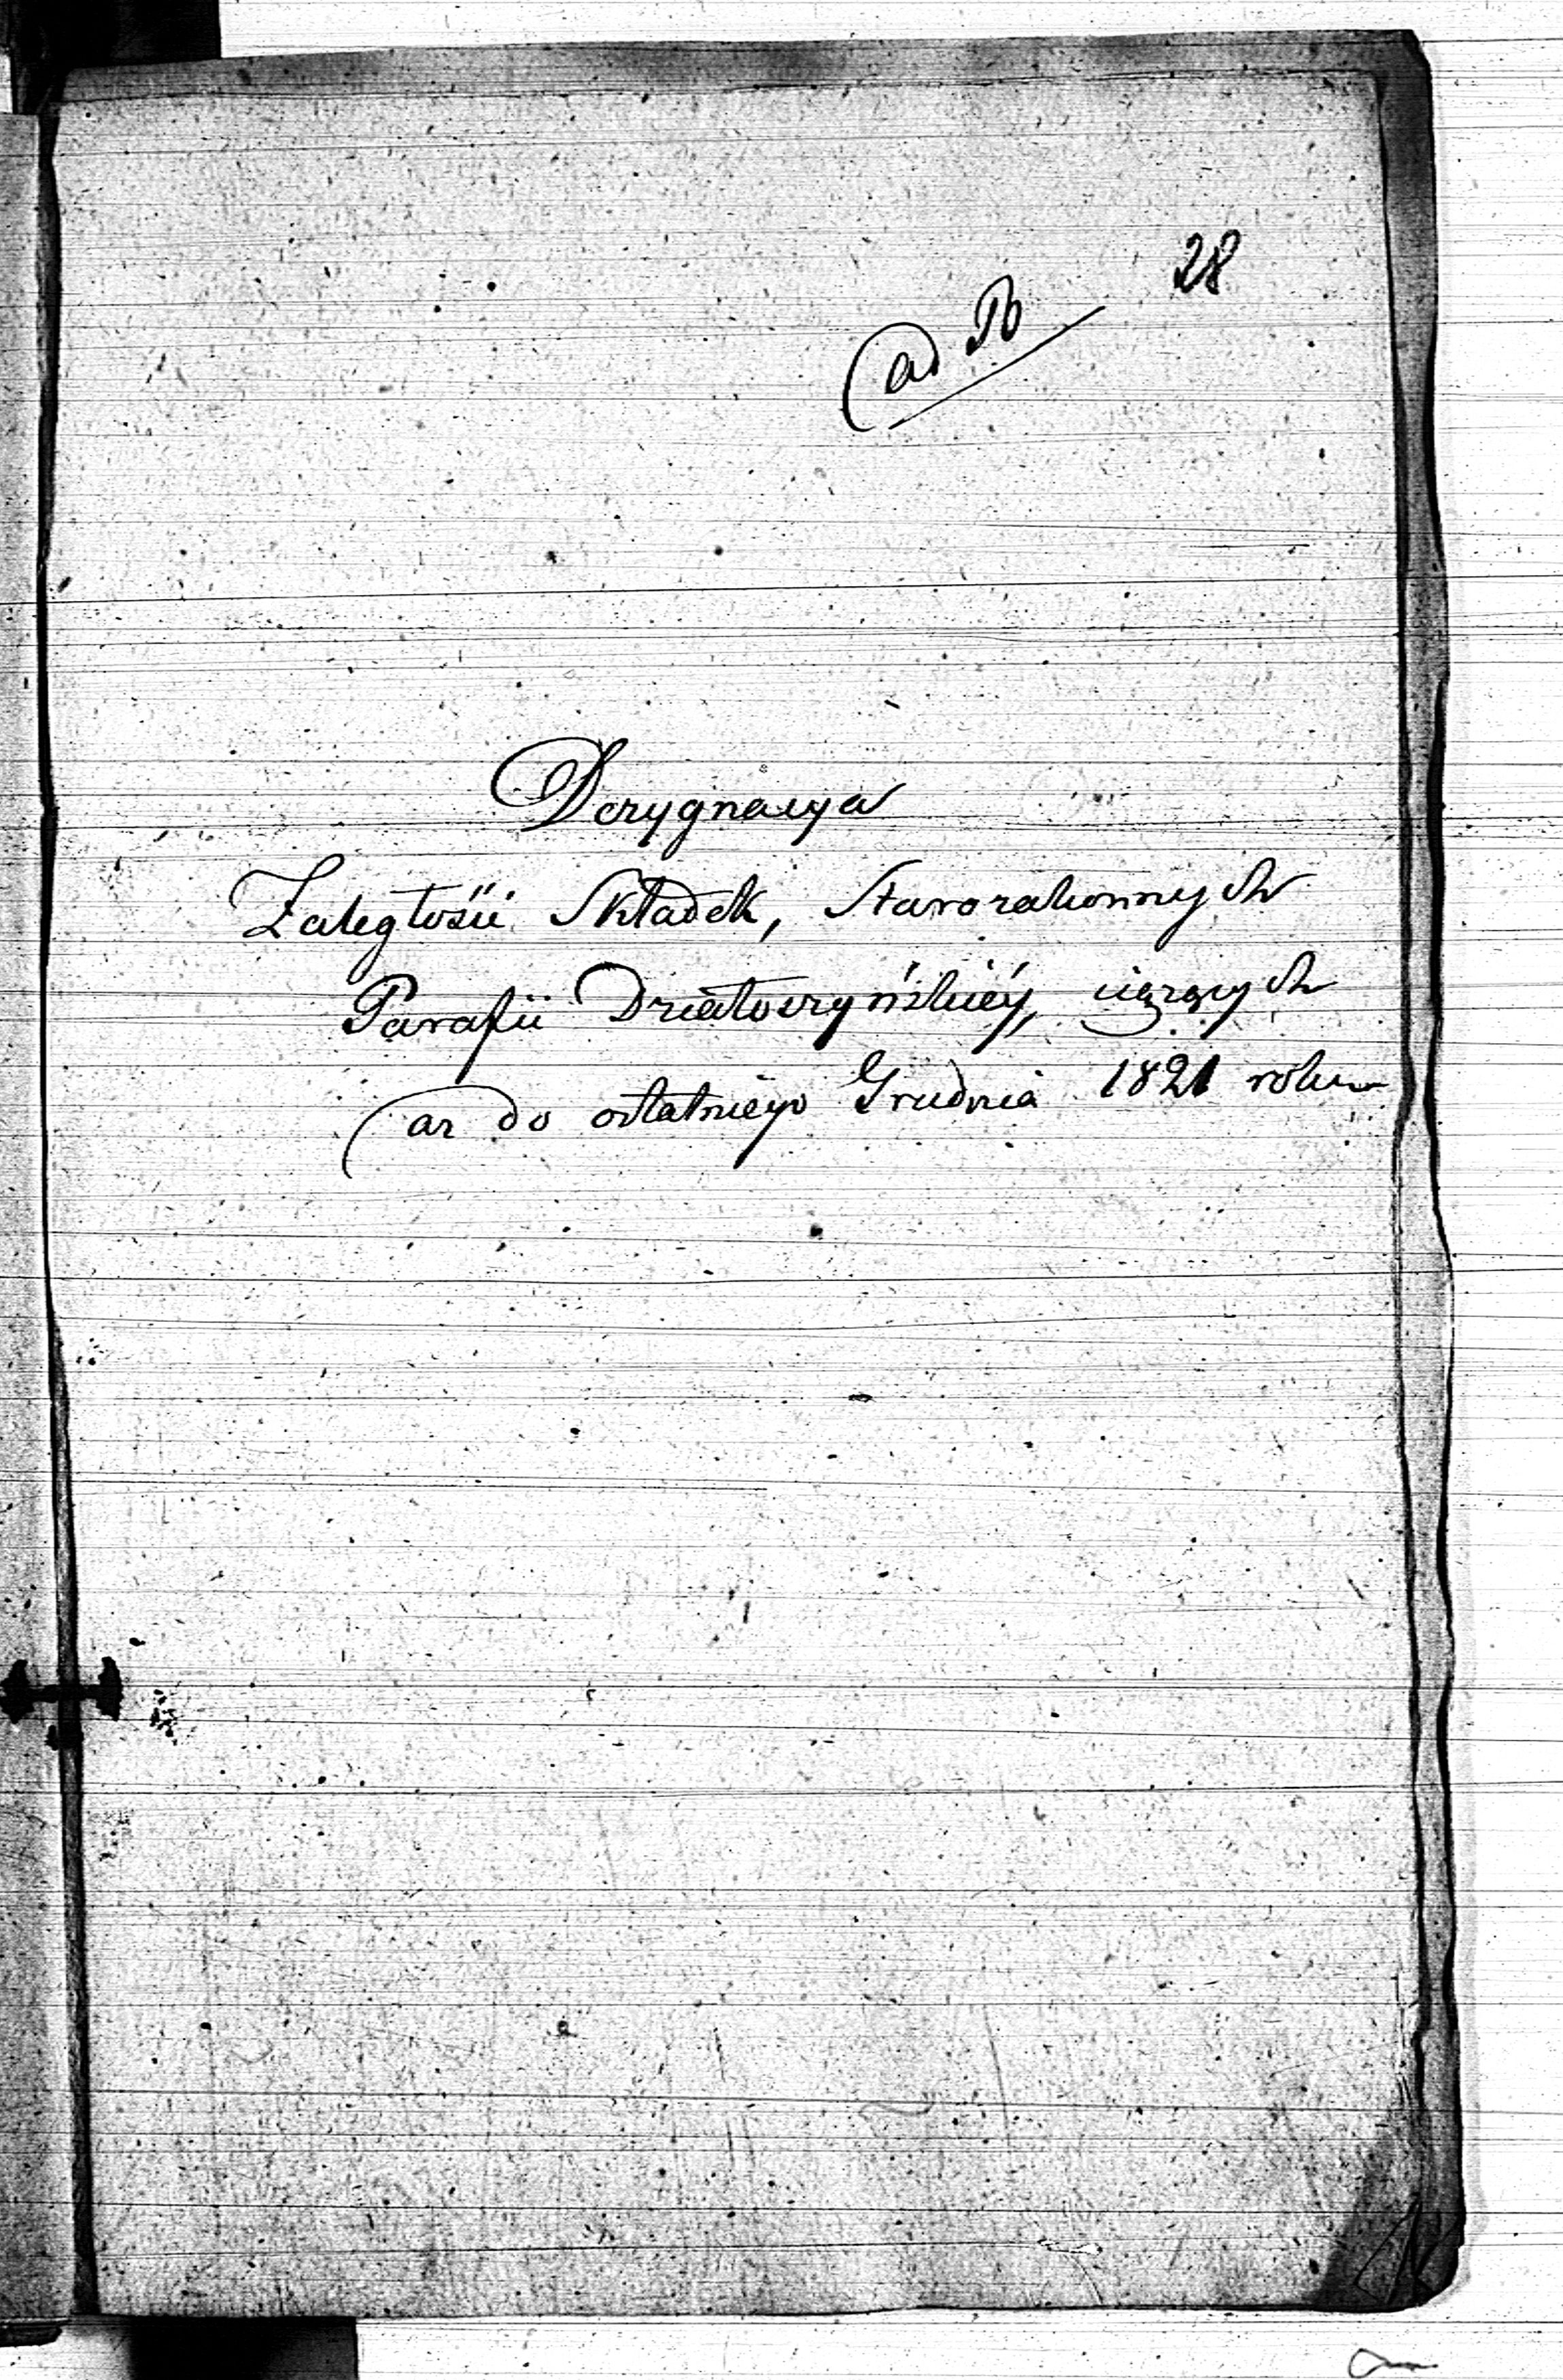 28
ad B
Dezygnacya
Zaległości Składek, Starozakonnych
Parafii Działoszyńskiéy, ciążących
az do ostatniego Grudnia 1821 roku